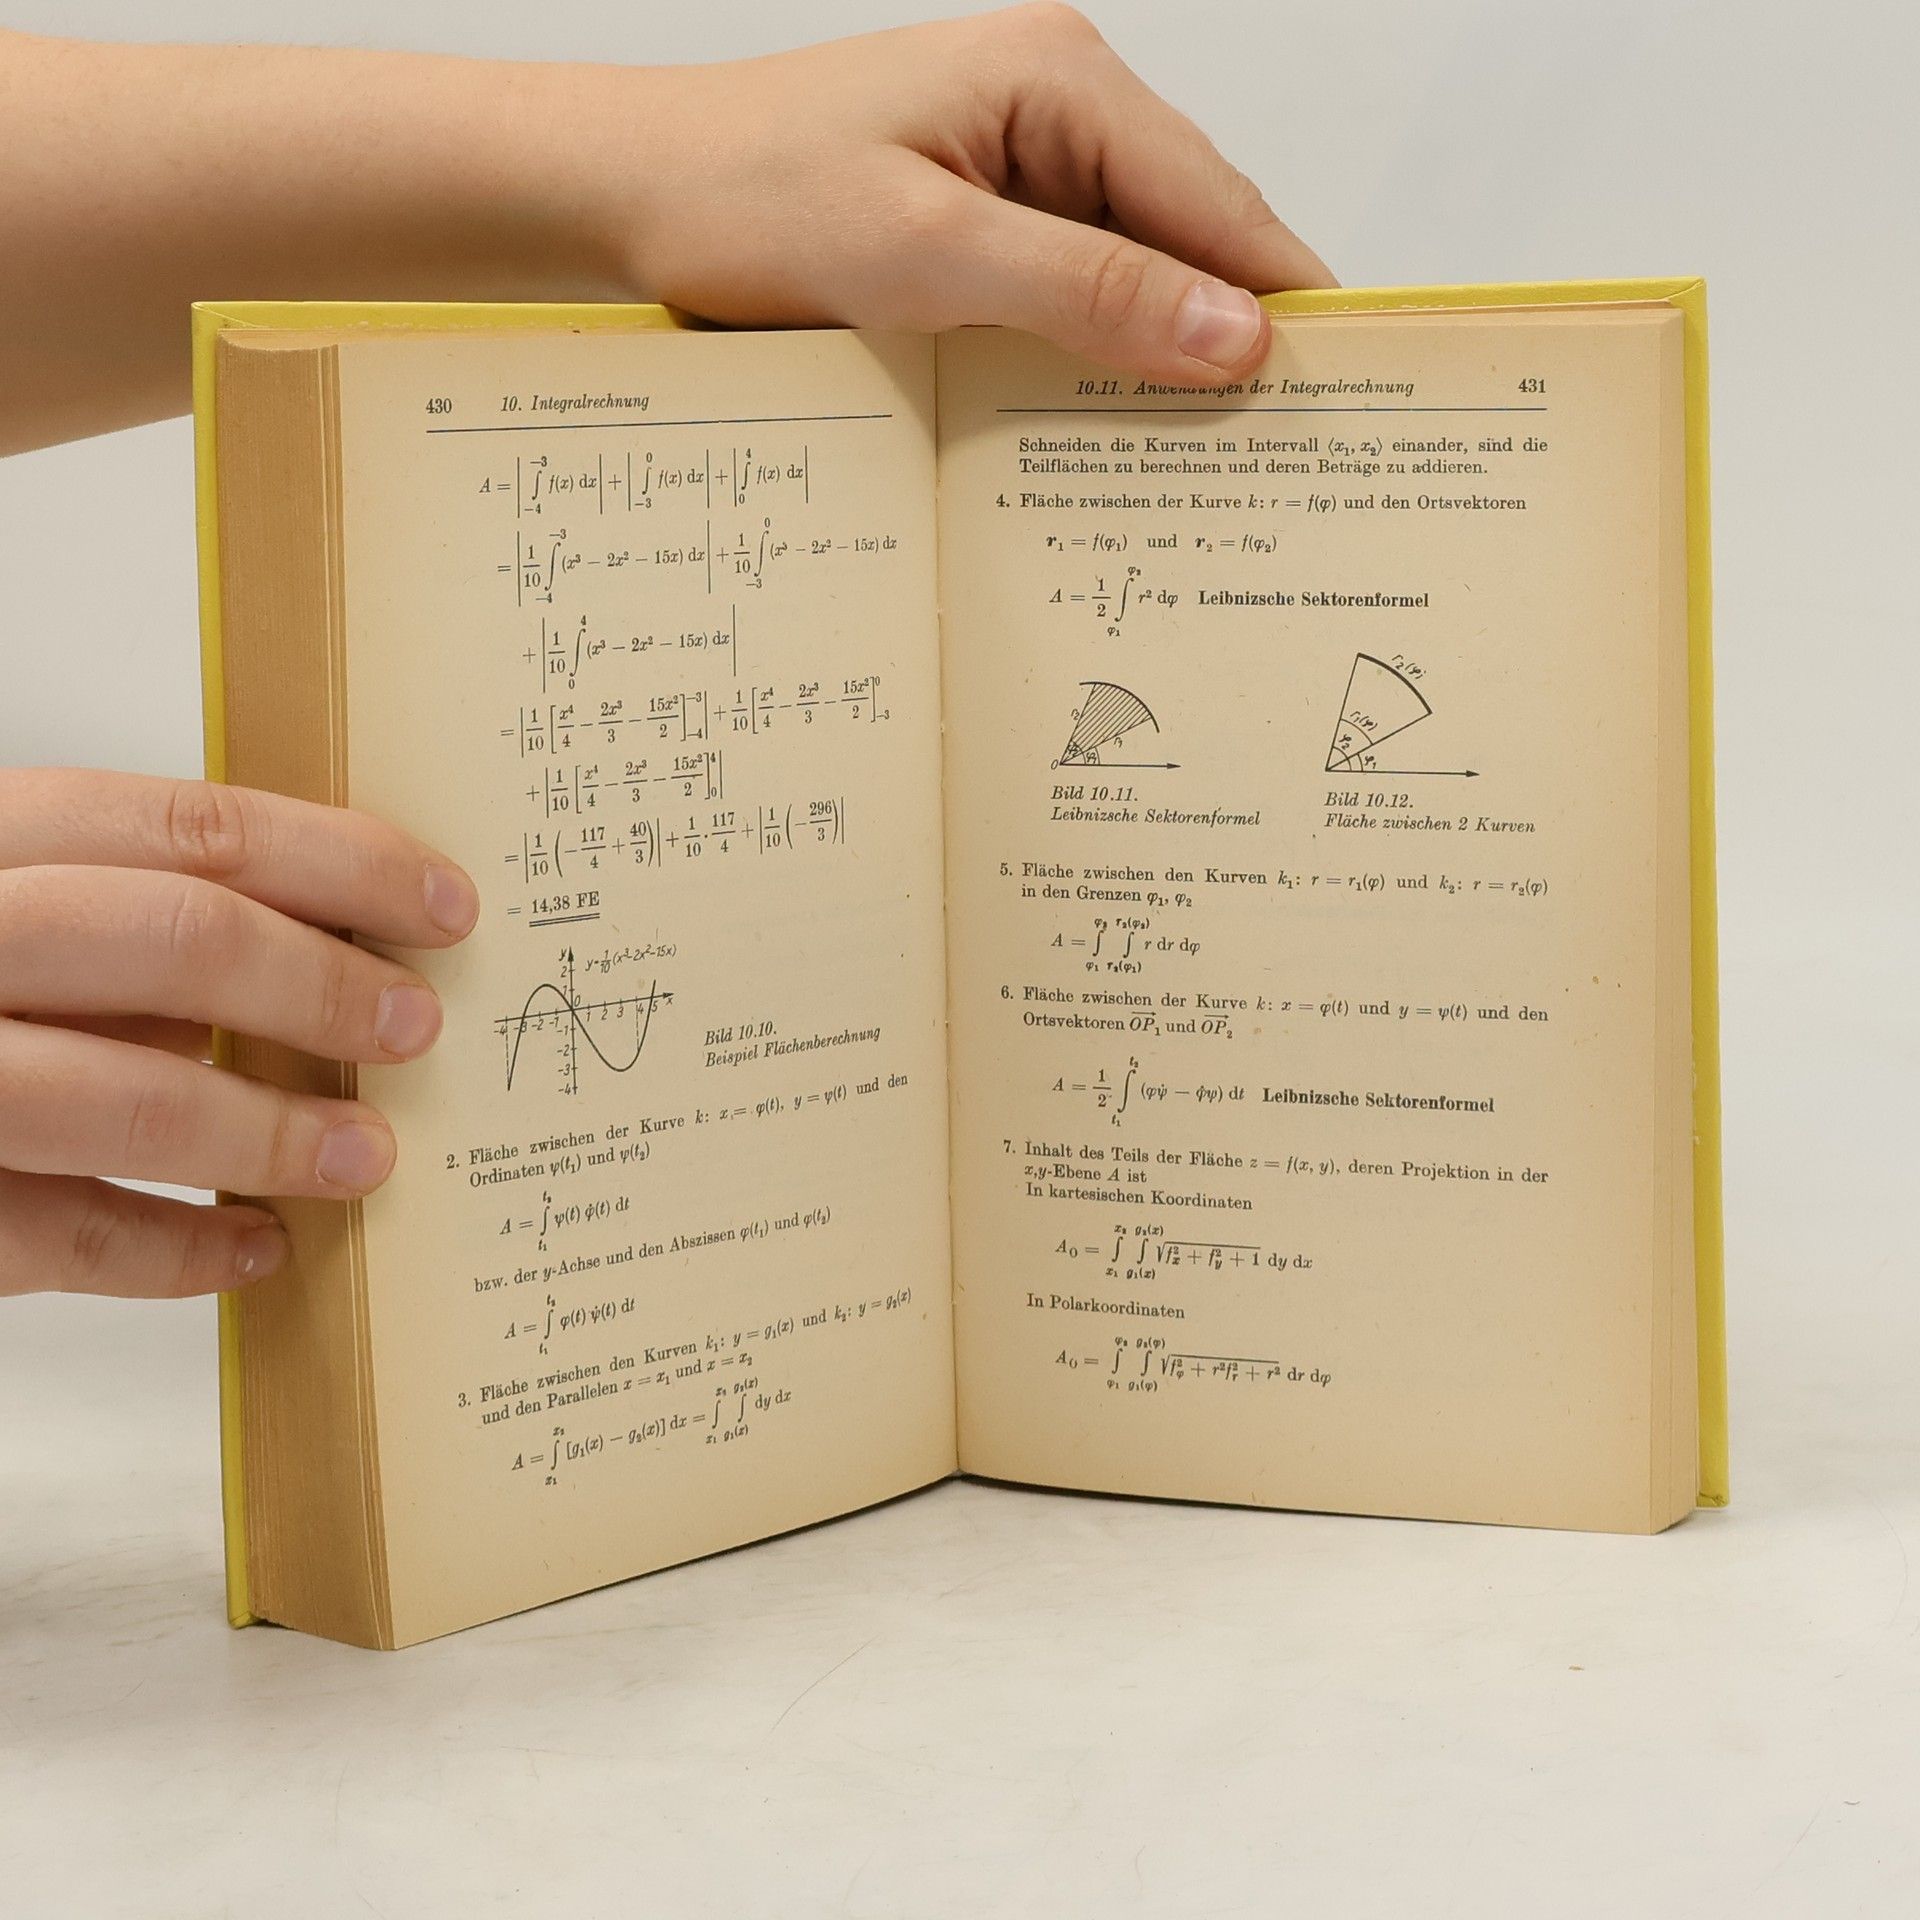 430 10. Integralrechnung
A = | ∫_{-4}^{-3} f(x) dx | + | ∫_{-3}^{0} f(x) dx | + | ∫_{0}^{4} f(x) dx |
= | 1/10 ∫_{-4}^{-3} (x³ − 2x² − 15x) dx | + 1/10 ∫_{-3}^{0} (x³ − 2x² − 15x) dx
+ | 1/10 ∫_{0}^{4} (x³ − 2x² − 15x) dx |
= | 1/10 [x⁴/4 − 2x³/3 − 15x²/2]_{-4}^{-3} | + 1/10 [x⁴/4 − 2x³/3 − 15x²/2]_{-3}^{0}
+ | 1/10 [x⁴/4 − 2x³/3 − 15x²/2]_{0}^{4} |
= | 1/10 (−117/4 + 40/3) | + 1/10 · 117/4 + | 1/10 (−296/3) |
= 14,38 FE
y
y=1/10(x³-2x²-15x)
2
1
0
-4 -3 -2 -1 1 2 3 4 5 x
-1
-2
-3
-4
Bild 10.10.
Beispiel Flächenberechnung
2. Fläche zwischen der Kurve k: x = φ(t), y = ψ(t) und den
Ordinaten ψ(t₁) und ψ(t₂)
A = ∫_{t₁}^{t₂} ψ(t) φ̇(t) dt
bzw. der y-Achse und den Abszissen φ(t₁) und φ(t₂)
A = ∫_{t₁}^{t₂} φ(t) ψ̇(t) dt
3. Fläche zwischen den Kurven k₁: y = g₁(x) und k₂: y = g₂(x)
und den Parallelen x = x₁ und x = x₂
A = ∫_{x₁}^{x₂} [g₁(x) − g₂(x)] dx = ∫_{x₁}^{x₂} ∫_{g₁(x)}^{g₂(x)} dy dx
10.11. Anwendungen der Integralrechnung 431
Schneiden die Kurven im Intervall ⟨x₁, x₂⟩ einander, sind die
Teilflächen zu berechnen und deren Beträge zu addieren.
4. Fläche zwischen der Kurve k: r = f(φ) und den Ortsvektoren
r₁ = f(φ₁) und r₂ = f(φ₂)
A = 1/2 ∫_{φ₁}^{φ₂} r² dφ Leibnizsche Sektorenformel
r₂ r₁ φ₂ φ₁ 0
Bild 10.11.
Leibnizsche Sektorenformel
r₂(φ) r₁(φ) φ₂ φ₁
Bild 10.12.
Fläche zwischen 2 Kurven
5. Fläche zwischen den Kurven k₁: r = r₁(φ) und k₂: r = r₂(φ)
in den Grenzen φ₁, φ₂
A = ∫_{φ₁}^{φ₂} ∫_{r₂(φ₁)}^{r₂(φ₂)} r dr dφ
6. Fläche zwischen der Kurve k: x = φ(t) und y = ψ(t) und den
Ortsvektoren OP⃗₁ und OP⃗₂
A = 1/2 ∫_{t₁}^{t₂} (φψ̇ − φ̇ψ) dt Leibnizsche Sektorenformel
7. Inhalt des Teils der Fläche z = f(x, y), deren Projektion in der
x,y-Ebene A ist
In kartesischen Koordinaten
A₀ = ∫_{x₁}^{x₂} ∫_{g₁(x)}^{g₂(x)} √(fₓ² + f_y² + 1) dy dx
In Polarkoordinaten
A₀ = ∫_{φ₁}^{φ₂} ∫_{g₁(φ)}^{g₂(φ)} √(f_φ² + r²f_r² + r²) dr dφ